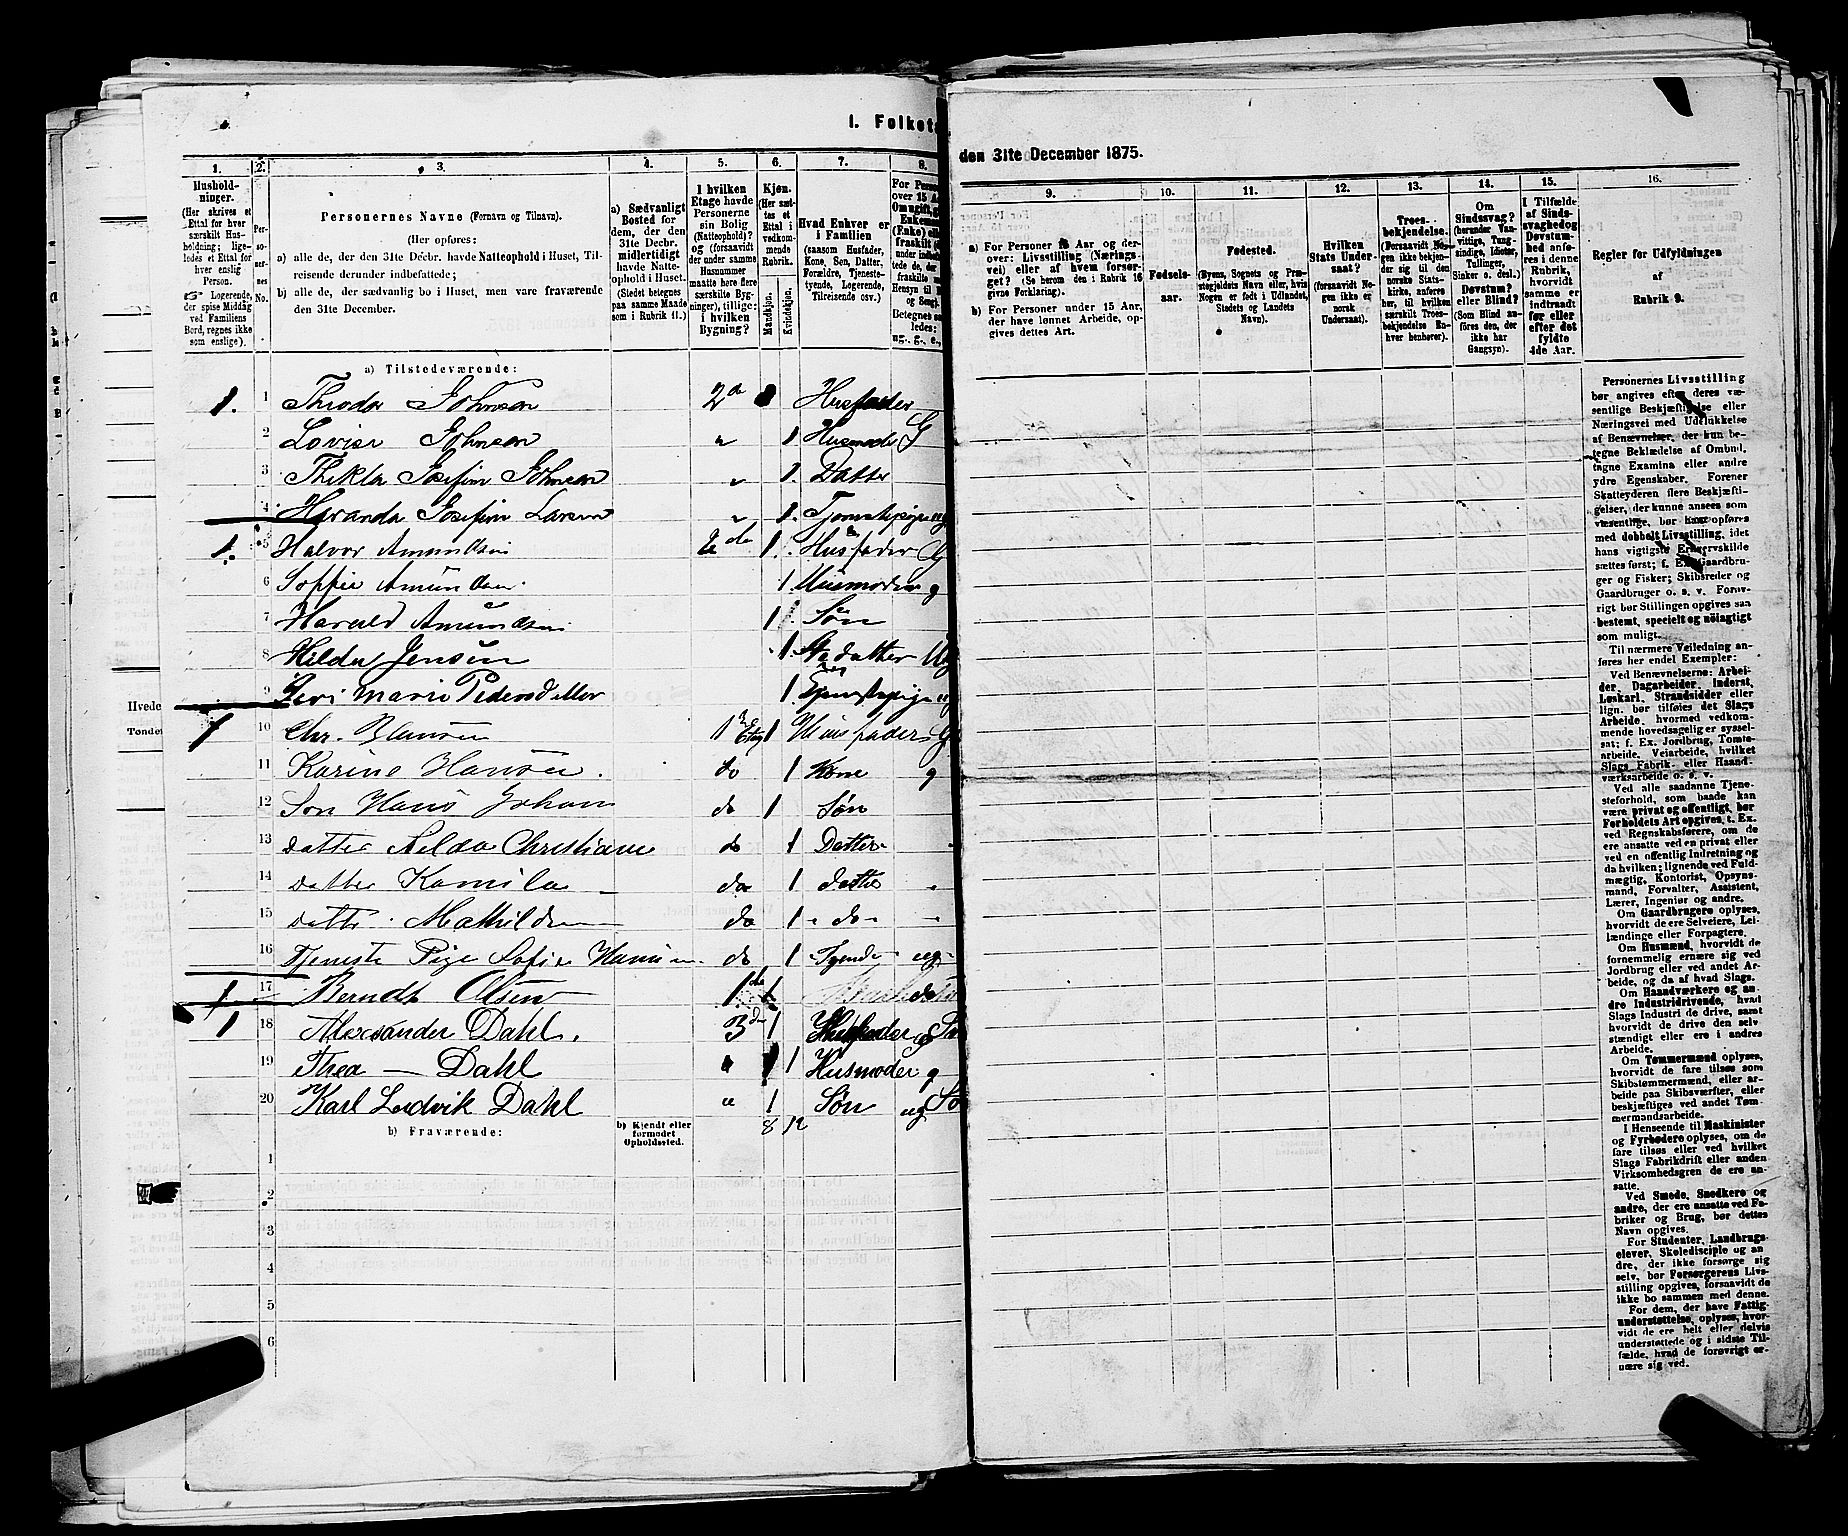 I. Folket
den 31te December 1875.
1.
2.
3.
4.
5.
6.
7.
8.
Hushold-
ninger.
(Her skrives et
Ettal for hver
særskilt Hus-
holdning; lige-
ledes et Ettal for
hver enslig
Person.
Logerende,
der spise Middag
ved Familiens
Bord, regnes ikke
som enslige).
Per-
so-
ner-
nes
No.
Personernes Navne (Fornavn og Tilnavn).
(Her opføres:
a) alle de, der den 31te Decbr. havde Natteophold i Huset, Til-
reisende derunder indbefattede;
b) alle de, der sædvanlig bo i Huset, men vare fraværende
den 31te December.
a) Sædvanligt
Bosted for
dem, der den
31te Decbr.
midlertidigt
havde Natte-
ophold i Huset.
(Stedet betegnes
paa samme Maade
som i Rubrik 11.)
I hvilken
Etage havde
Personerne
sin Bolig
(Natteophold)?
og (forsaavidt
der under samme
Husnummer
maatte høre flere
særskilte Byg-
ninger), tillige:
i hvilken
Bygning?
Kjøn.
(Her sæt-
tes et
Ettal i
vedkom-
mende
Rubrik.
Mandkjøn.
Kvindekjøn.
Hvad Enhver er
i Familien
(saasom Husfader,
Kone, Søn, Datter,
Forældre, Tjeneste-
tyende, Logerende,
Tilreisende osv.)
a) Tilstedeværende:
1. 1 Theodor Johnsen 2den Husfader
2 Lovise Johnsen " 1 Husmoder G
3 Thekla Josefine Johnsen " 1. Datter
4 Josefine Larsen " 1. ug
1. 5 Halvor Amundsen 2de 1. Husfader G
6 Soffie Amundsen 1 Husmoder g
7 Harald Amundsen 1 Søn
8 Hilda Jensen 1. Stedatter Ug
9 Marie Pedersdatter 1. Tjenestepige ug
1 10 Chr. Hansen 1ste Etag 1 Huusfader G
11 Karine Hansen. do 1 Kone g
12 Søn Hans Johan do 1 Søn
13 Datter Hilda Christiane do 1 Datter
14 Datter Kamila do 1 datter
15 datter Mathilde do 1 - do -
16 Tjeneste Pige Sofie Hansen do 1 Tyende ug
1 17 Berndt Olsen 1ste 1
1 18 Alexander Dahl. 3de 1 Husfader g
19 Thea — Dahl " 1 Husmoder g
20 Karl Ludvik Dahl " 1 Søn ug
8 12
b) Fraværende:
b) Kjendt eller
formodet
Opholdssted.
1
2
3
4
5
6
Hvede
Tønder
9.
10.
11.
12.
13.
14.
15.
16.
a) For Personer 15 Aar og der-
over: Livsstilling (Nærings-
vei) eller af hvem forsør-
get? (Se herom den i Rubrik 16
givne Forklaring).
b) For Personer under 15 Aar,
der have lønnet Arbeide, op-
gives dettes Art.
Fødsels-
aar.
Fødested.
(Byens, Sognets og Præ-
stegjeldets Navn, eller, hvis
Nogen er født i Udlandet,
Stedets og Landets
Navn).
Hvilken
Stats Under-
saat?
(forsaavidt No-
gen ikke er
norsk
Undersaat).
Troes-
bekjendelse.
(Forsaavidt No-
gen ikke bekjen-
der sig til den
norske Stats-
kirke, anføres
her, til hvilken
særskilt Troes-
bekjendelse En-
hver henhører).
Om
Sindssvag?
(herunder Van-
vittige, Tung-
sindige, Idioter,
Tullinger,
Sinker o. desl.)
Døvstum?
eller Blind?
(Som Blind an-
føres den, der
ikke har
Gangsyn).
I Tilfælde
af Sinds-
svaghed og
Døvstum-
hed anfø-
res i denne
Rubrik,
hvorvidt
samme er
indtraadt
før eller
efter det
fyldte
4de Aar.
Regler for Udfyldningen
af
Rubrik 9.
Personernes Livsstilling
bør angives efter deres væ-
sentlige Beskjæftigelse eller
Næringsvei med Udelukkelse
af Benævnelser, der kun be-
tegne Beklædelse af Ombud,
tagne Examina eller andre
ydre Egenskaber. Forener
Skatteyderen flere Beskjæfti-
gelser, der kunne ansees som
væsentlige, bør han opføres
med dobbelt Livsstilling, idet
hans vigtigste Erhvervskilde
sættes først; f. Ex. Gaardbru-
ger og Fisker; Skibsreder og
Gaardbruger o. s. v. Forøv-
rigt bør Stillingen opgives saa
bestemt, specielt og nøiagtigt
som muligt.
Til nærmere Veiledning an-
føres her endel Exempler:
Ved Benævnelserne: Arbei-
der, Dagarbeider, Inderst,
Løskarl, Strandsidder eller
lign. bør tilføies det Slags
Arbeide, hvormed vedkom-
mende hovedsagelig er syssel-
sat; f. Ex. Jordbrug, Tomte-
arbeide, Veiarbeide, hvilket
Slags Fabrik- eller Haand-
værksarbeide o. s. v.
Ved alle saadanne Tjene-
steforhold, som baade kan
være privat og offentligt, bør
Forholdets Art opgives, t. Ex.
ved Regnskabsførere, om de
ere ansatte ved en privat eller
ved en offentlig Indretning og
da hvilken; lignende ved Fuld-
mægtig, Kontorist, Opsyns-
mand, Forvalter, Assistent,
Lærer, Ingeniør og andre.
Om Gaardbrugere oplyses,
hvorvidt de ere Selveiere, Lei-
lændinge eller Forpagtere.
Om Husmænd, hvorvidt de
fornemmelig ernære sig ved
Jordbrug eller ved andet Ar-
beide, og da af hvad Slags.
Om Haandværkere og an-
dre Industridrivende, hvad
Slags Industri de drive, samt
hvorvidt de drive den selv-
stændigt eller ere i andres
Arbeide.
Om Tømmermænd oplyses,
hvorvidt de fare tilsøs som
Skibstømmermænd, eller ar-
beide paa Skibsværfter, eller
beskjæftiges ved andet Tøm-
mermandsarbeide.
I Henseende til Maskinister
og Fyrbødere oplyses, om de
fare tilsøs eller ved hvilket
Slags Fabrikdrift eller anden
Virksomhedsgren de ere an-
satte.
Ved Smede, Snedkere og
andre, der ere ansatte ved Fa-
briker og Brug, bør dettes
Navn opgives.
For Studenter, Landbrugs-
elever, Skoledisciple og an-
dre, der ikke forsørge sig
selv, bør Forsørgerens Livs-
stilling opgives, forsaavidt de
ikke bo sammen med denne.
For dem, der have Fattig-
understøttelse, oplyses, hvor-
vidt de ere helt eller delvis
understøttede og i sidste Til-
fælde, hvad de forøvrigt er-
nære sig ved.